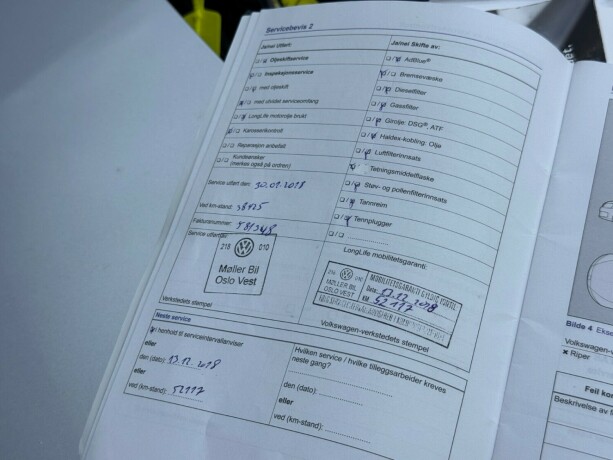 Servicebevis 2
Ja/nei Utført:
Oljeskiftservice
Inspeksjonsservice
med oljeskift
med utvidet serviceomfang
LongLife motorolje brukt
Karosserikontroll
Reparasjon anbefalt
Kundeønsker
(merkes også på ordren)
Service utført den: 30.01.2018
Ved km-stand: 38425
Fakturanummer:
Service utført av:
218 010
Møller Bil
Oslo Vest
Verkstedets stempel
Ja/nei Skiftes av:
AdBlue®
Bremsevæske
Dieselfilter
Gassfilter
Girolje: DSG®, ATF
Haldex-kobling: Olje
Luftfilterinnsats
Tetningsmiddelflaske
Støv- og pollenfilterinnsats
Tannreim
Tennplugger
LongLife mobilitetsgaranti:
010
MØLLER BIL
OSLO VEST
MOBILITETSGARANTI GYLDIG INNTIL
Dato: 13.12.2018
KM 52117
Volkswagen-verkstedets stempel
Neste service
I henhold til serviceintervallanviser
eller
den (dato): 13.12.2018
eller
ved (km-stand): 52117
Hvilken service / hvilke tilleggsarbeider kreves
neste gang?
den (dato):
eller
ved (km-stand):
Bilde 4
Volkswagen-
× Riper
Feil
Beskrivelse av